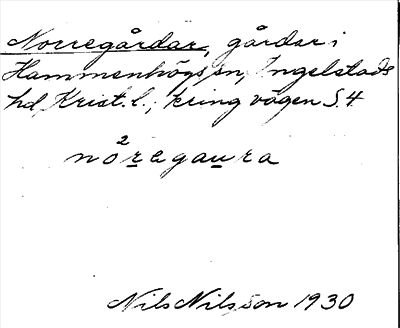 Norregårdar, gårdar i
Hammenhögs sn, Ingelstads
hd, Krist. l.; kring vägen S. 4
nò²regaura
Nils Nilsson 1930